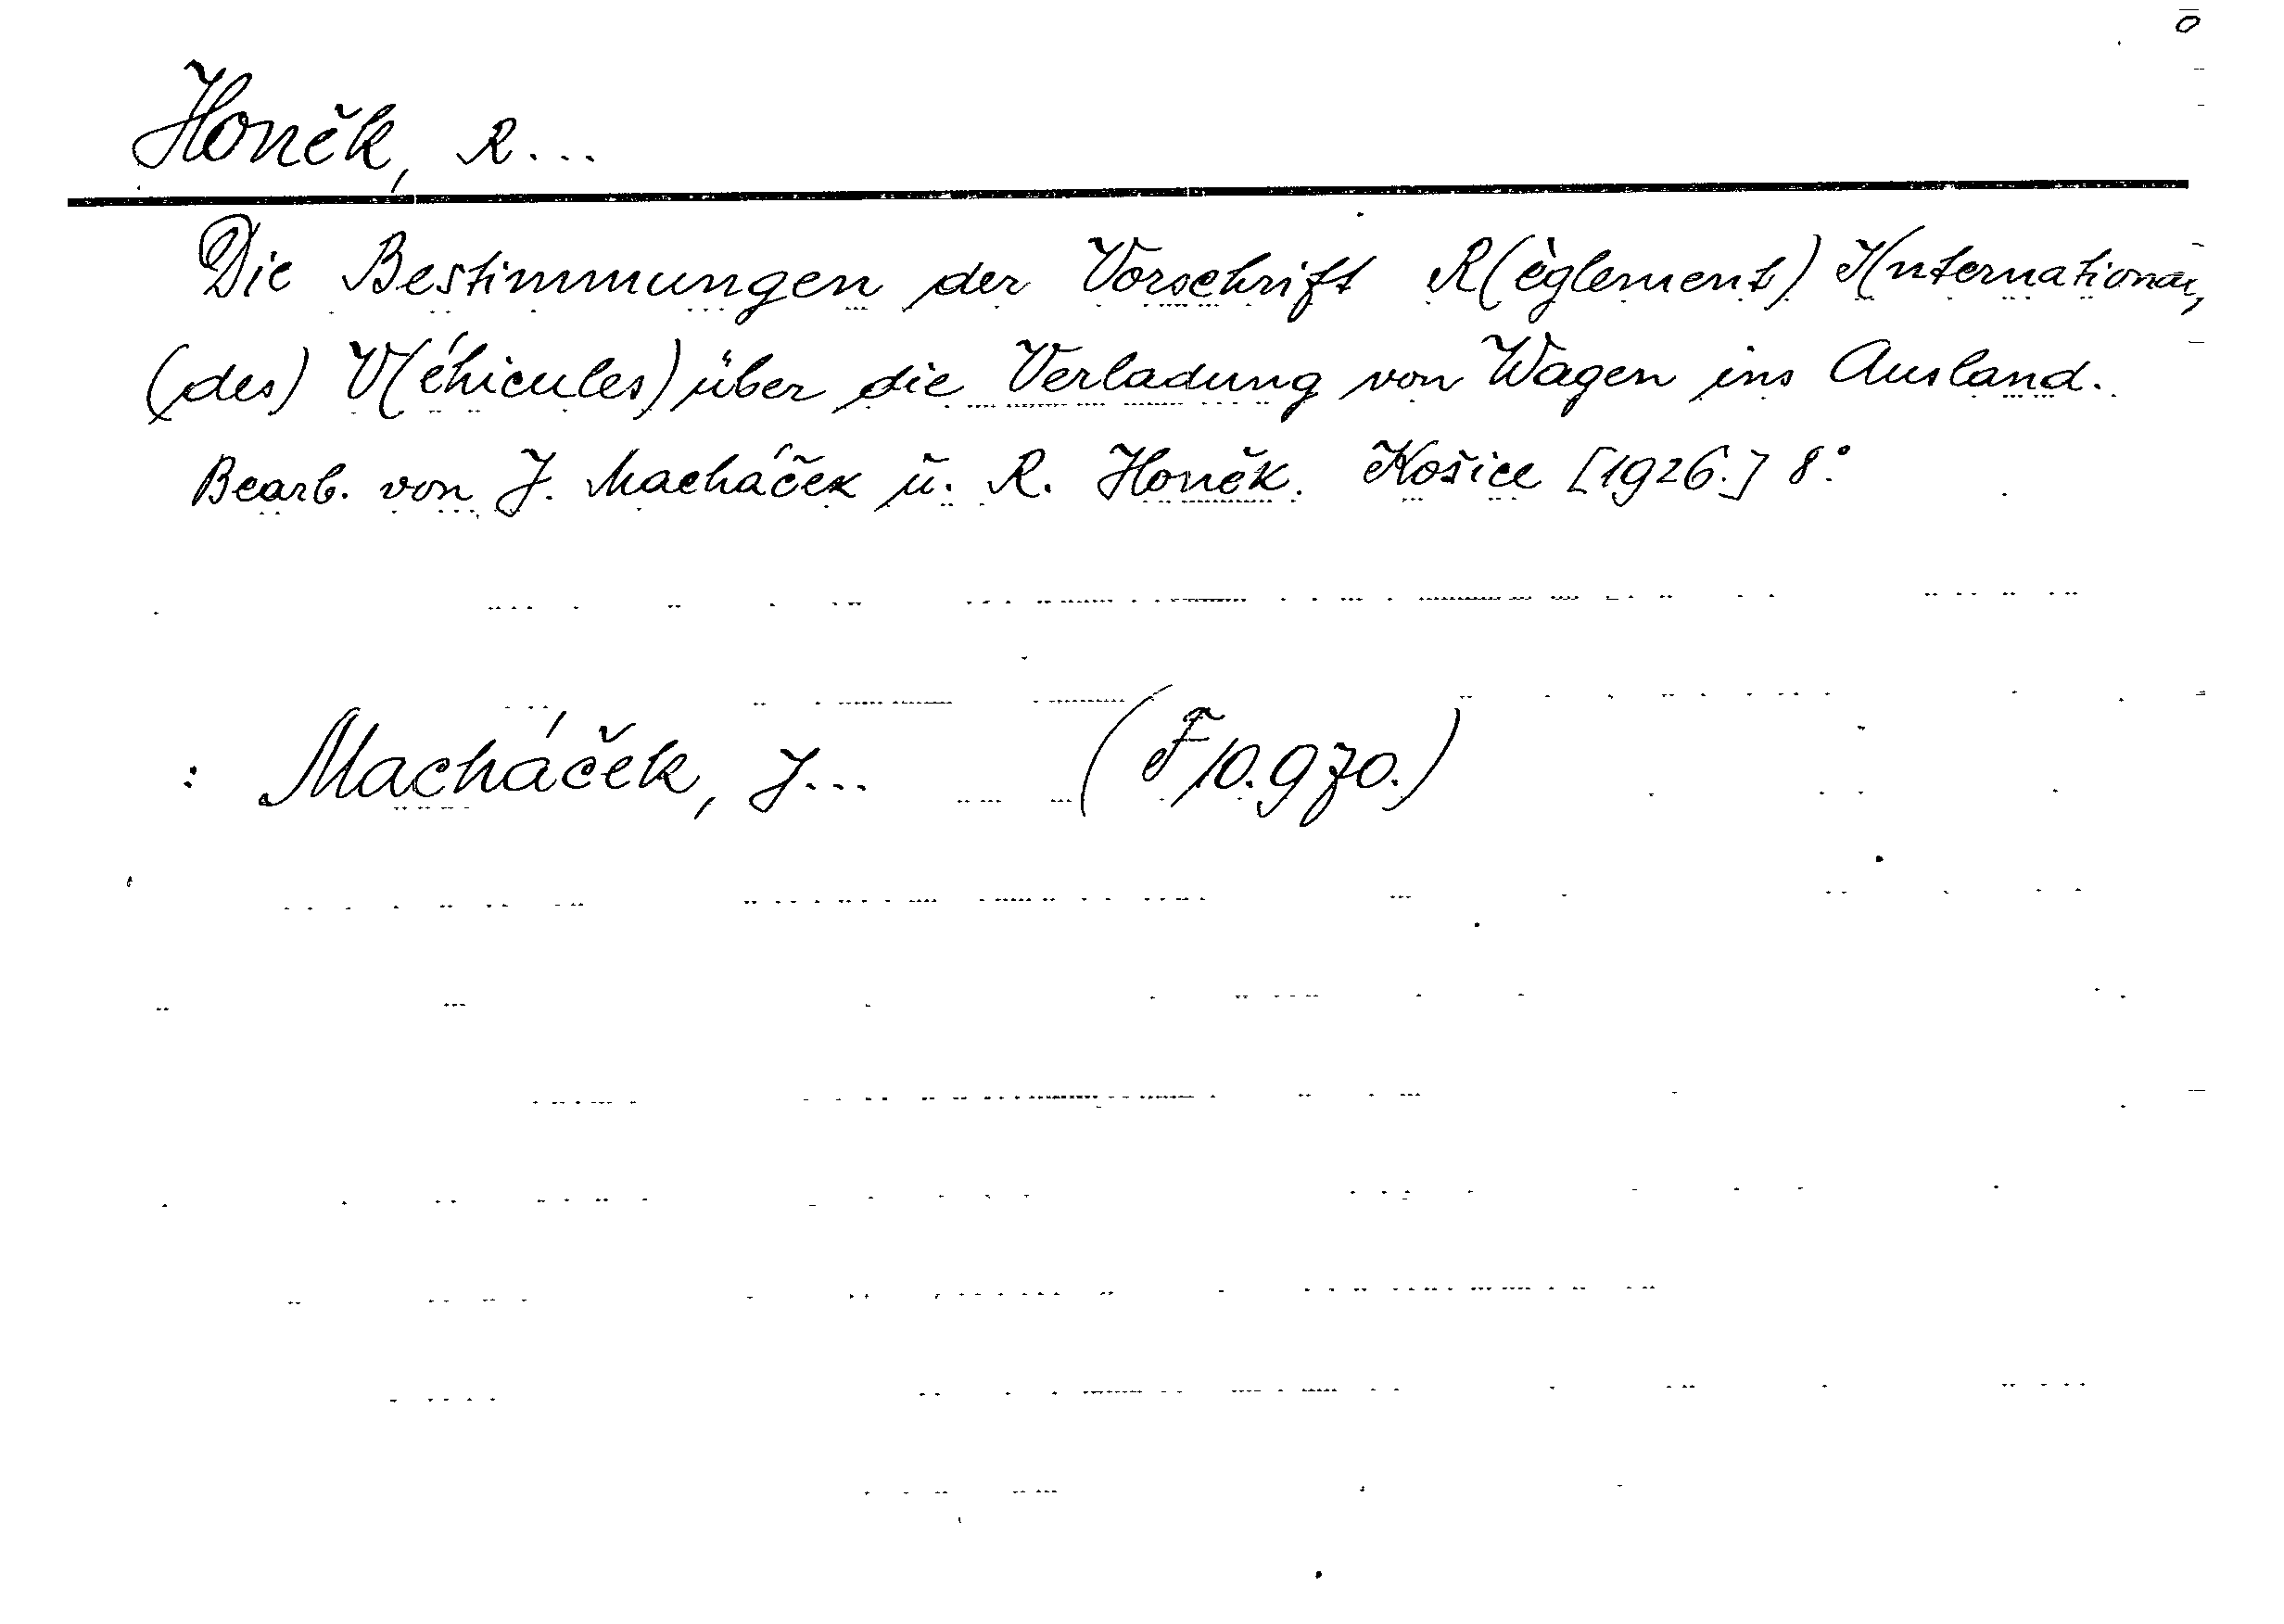 Honěk, R...
Die Bestimmungen der Vorschrift R(èglement) I(nternational,
(des) V(éhicules) über die Verladung von Wagen ins Ausland.
Bearb. von J. Macháček u. R. Honěk. Košice [1926.] 8°.
: Macháček, J... (F 10.970.)